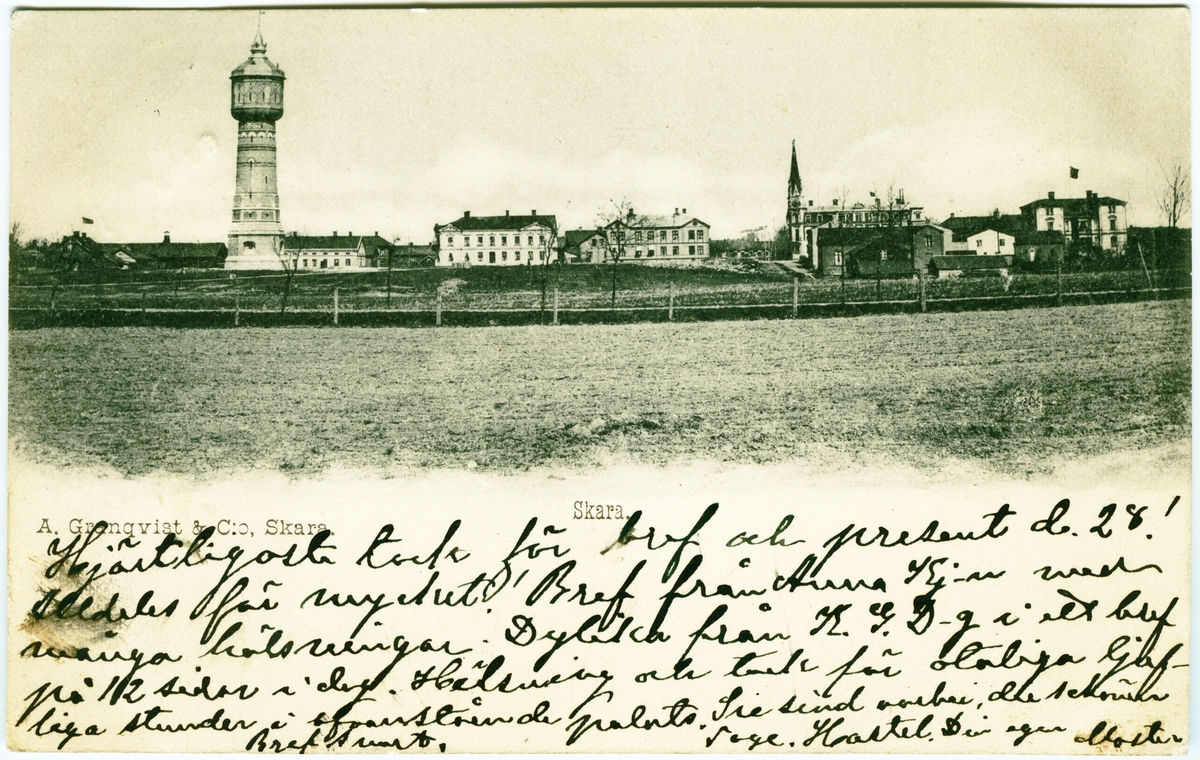 Skara.
A. Grenqvist & C:o, Skara
Hjärtligaste tack för bref och present d. 28!
Alldeles för mycket! Bref från Anna Kj-n med
många hälsningar. Dylika från K. G. D-g i ett bref
på 12 sidor i dag. Hälsning och tack för otaliga ljuf-
liga stunder i ofvanstående palats. Sie sind vorbei, die schönen
Bref snart. Tage. Hastel. Din egen Moster